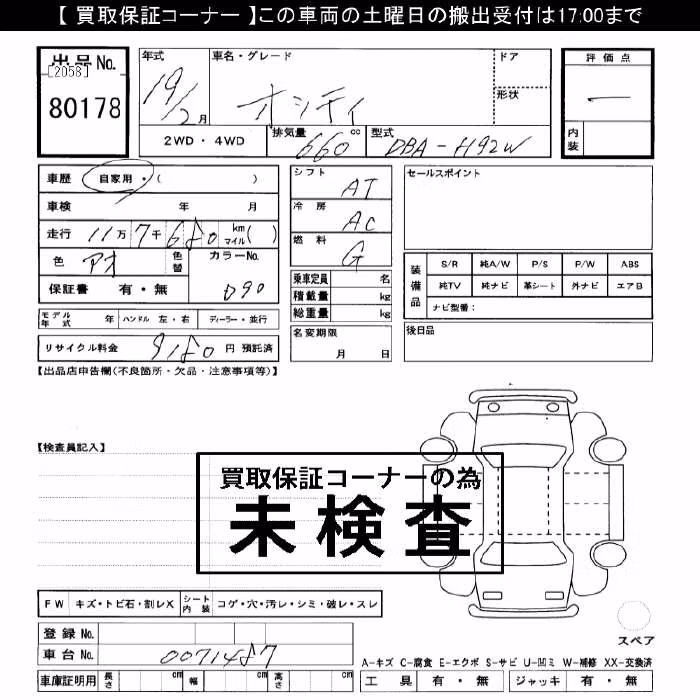 【 買取保証コーナー 】この車両の土曜日の搬出受付は17:00まで
出品 No.
[2058]
80178
年式
19/2月
車名・グレード
オッティ
ドア
形状
評価点
—
内装
2WD ・ 4WD
排気量
660 cc
型式
DBA-H92W
車歴 自家用 ・( )
車検 年 月
走行 11万 7千 680 km マイル( )
色 アオ 色替
カラーNo.
D90
保証書 有・無
シフト AT
冷房 AC
燃料 G
乗車定員 名
積載量 kg
総重量 kg
セールスポイント
装備品
S/R 純A/W P/S P/W ABS
純TV 純ナビ 革シート 外ナビ エアB
ナビ型番：
モデル年式 年 ハンドル 左・右 ディーラー・並行
名変期限 月 日
後日品
リサイクル料金 9180 円 預託済
【出品店申告欄(不良箇所・欠品・注意事項等)】
【検査員記入】
買取保証コーナーの為
未検査
FW キズ・トビ石・割レX シート内装 コゲ・穴・汚レ・シミ・破レ・スレ
登録 No.
車台 No. 0071487
スペア
A-キズ C-腐食 E-エクボ S-サビ U-凹ミ W-補修 XX-交換済
車庫証明用 長さ cm 幅 cm 高さ cm
工具 有・無 ジャッキ 有・無